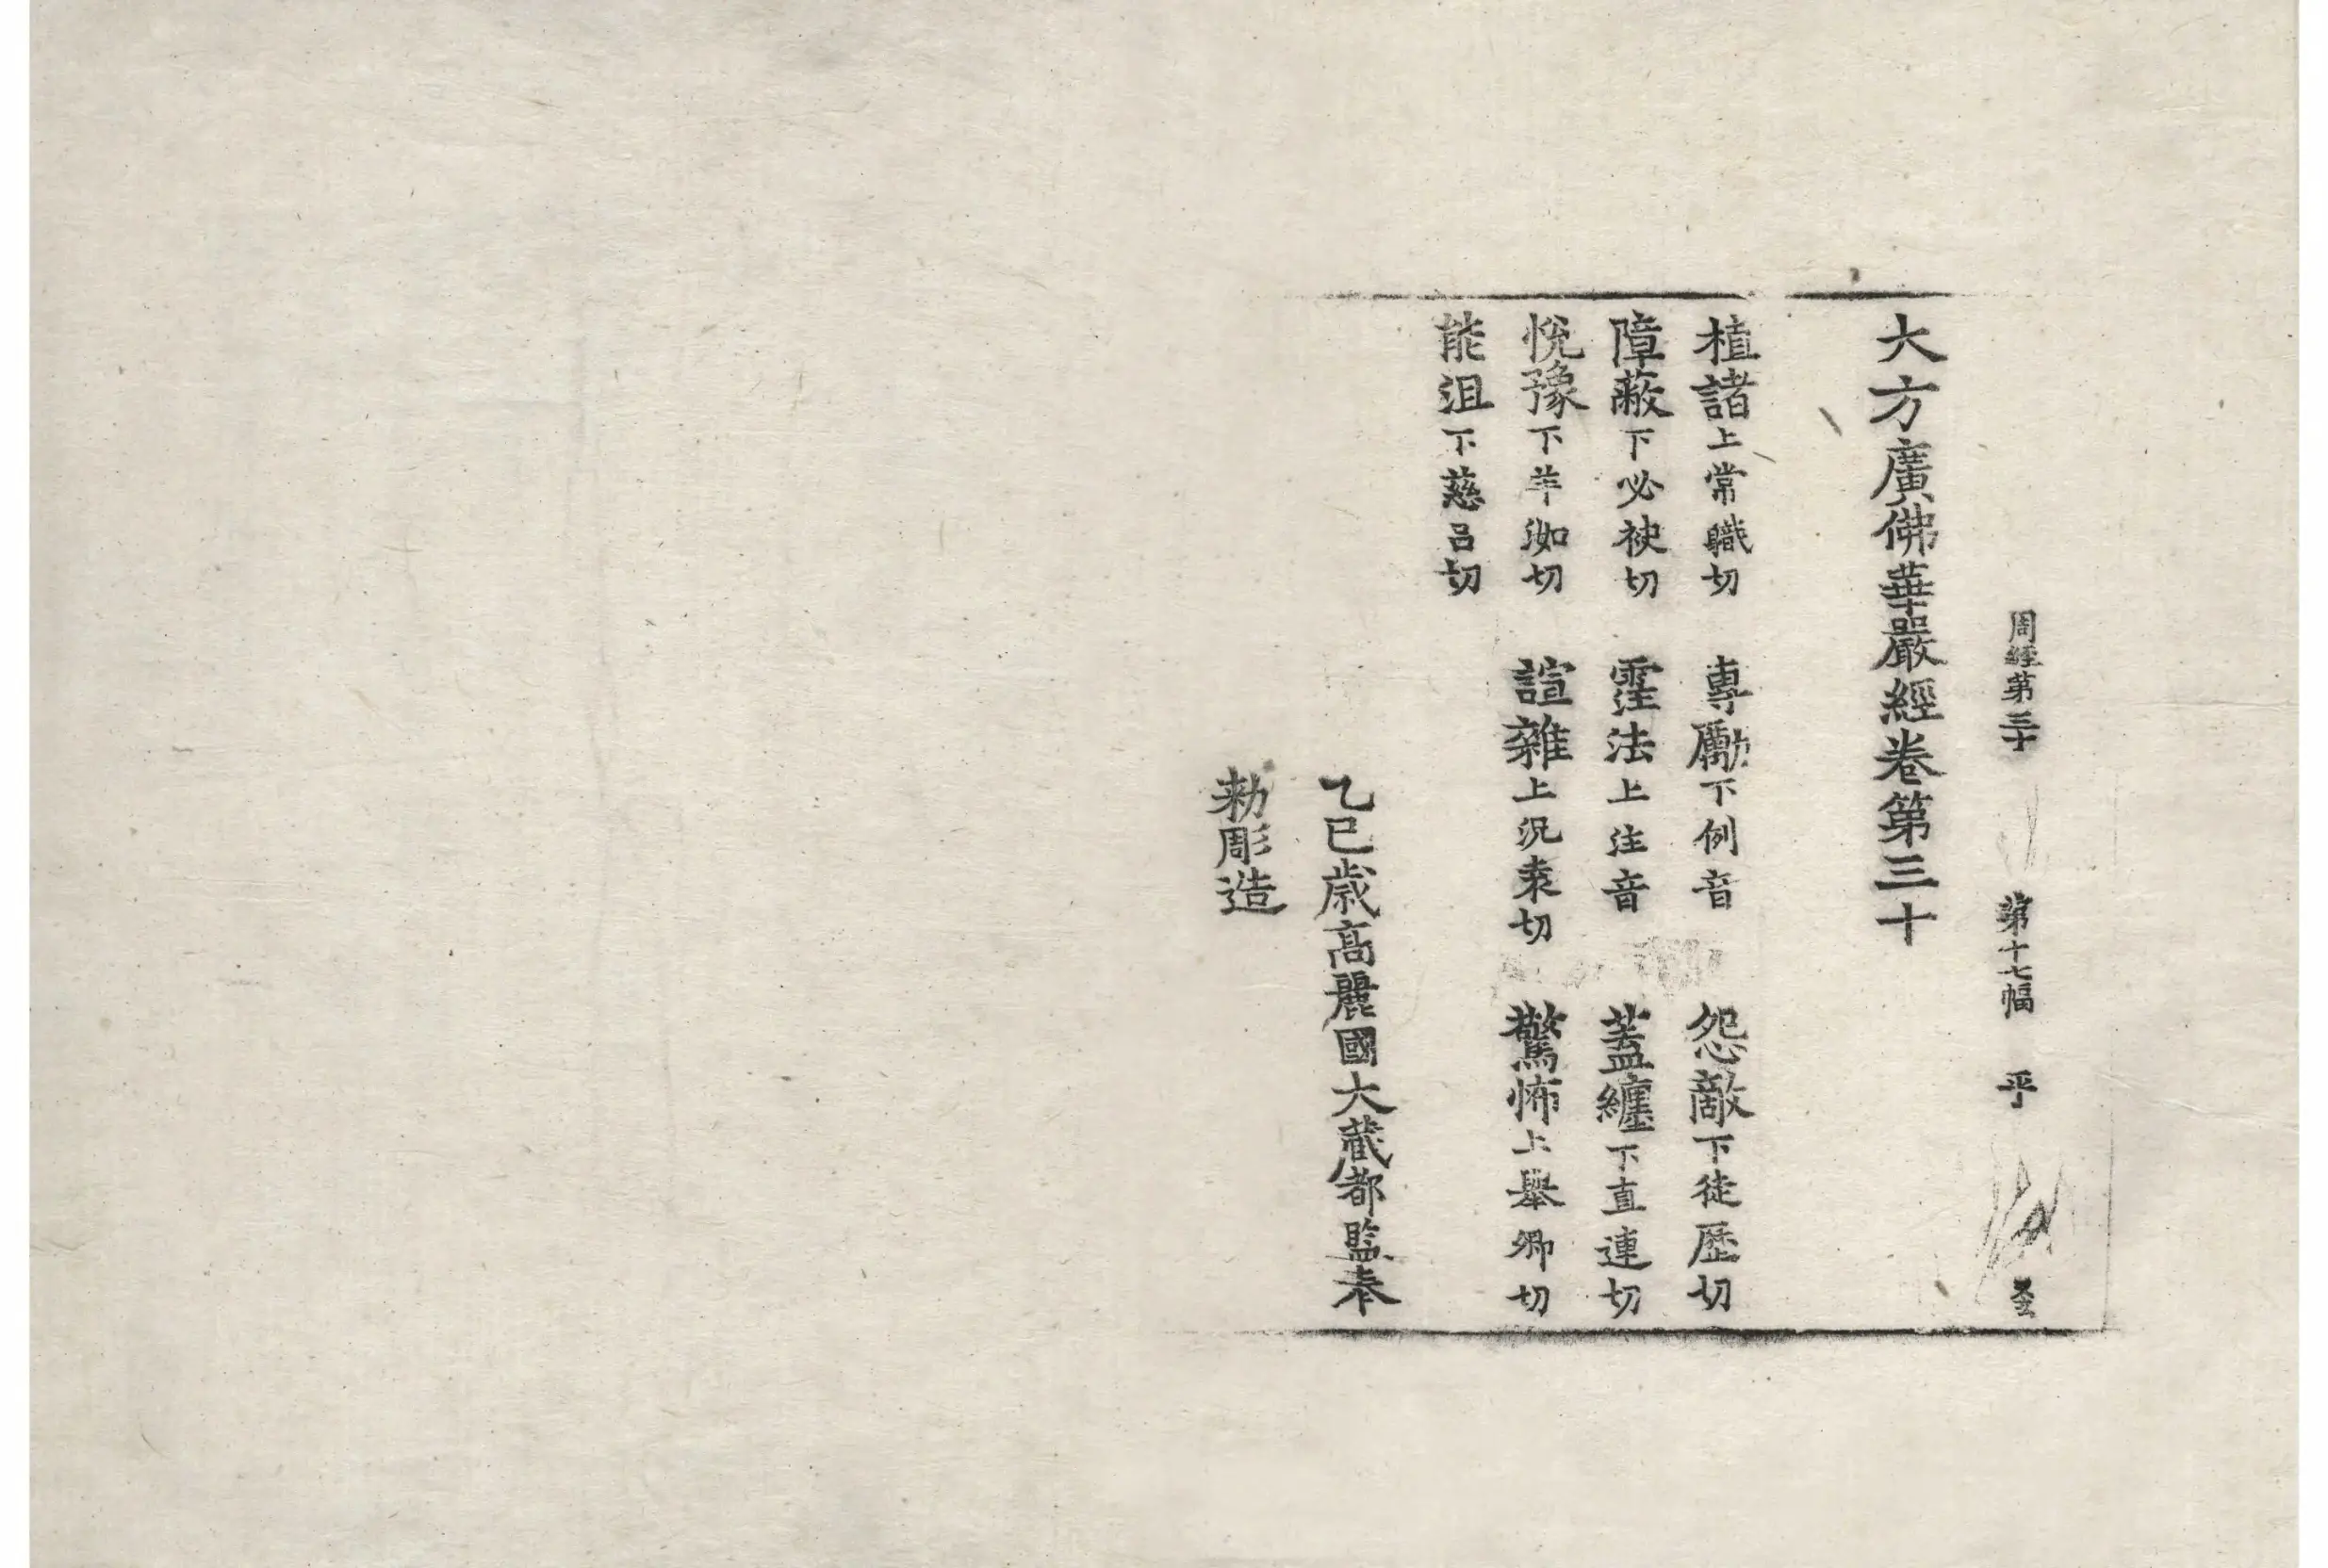 周經第三十 第十七幅 乎
大方廣佛華嚴經卷第三十
植諸上常職切 專勵下例音 怨敵下徒歷切
障蔽下必袂切 霔法上注音 蓋纏下直連切
悅豫下羊洳切 諠雜上況袁切 驚怖上舉卿切
能沮下慈呂切
乙巳歲高麗國大藏都監奉
勅彫造